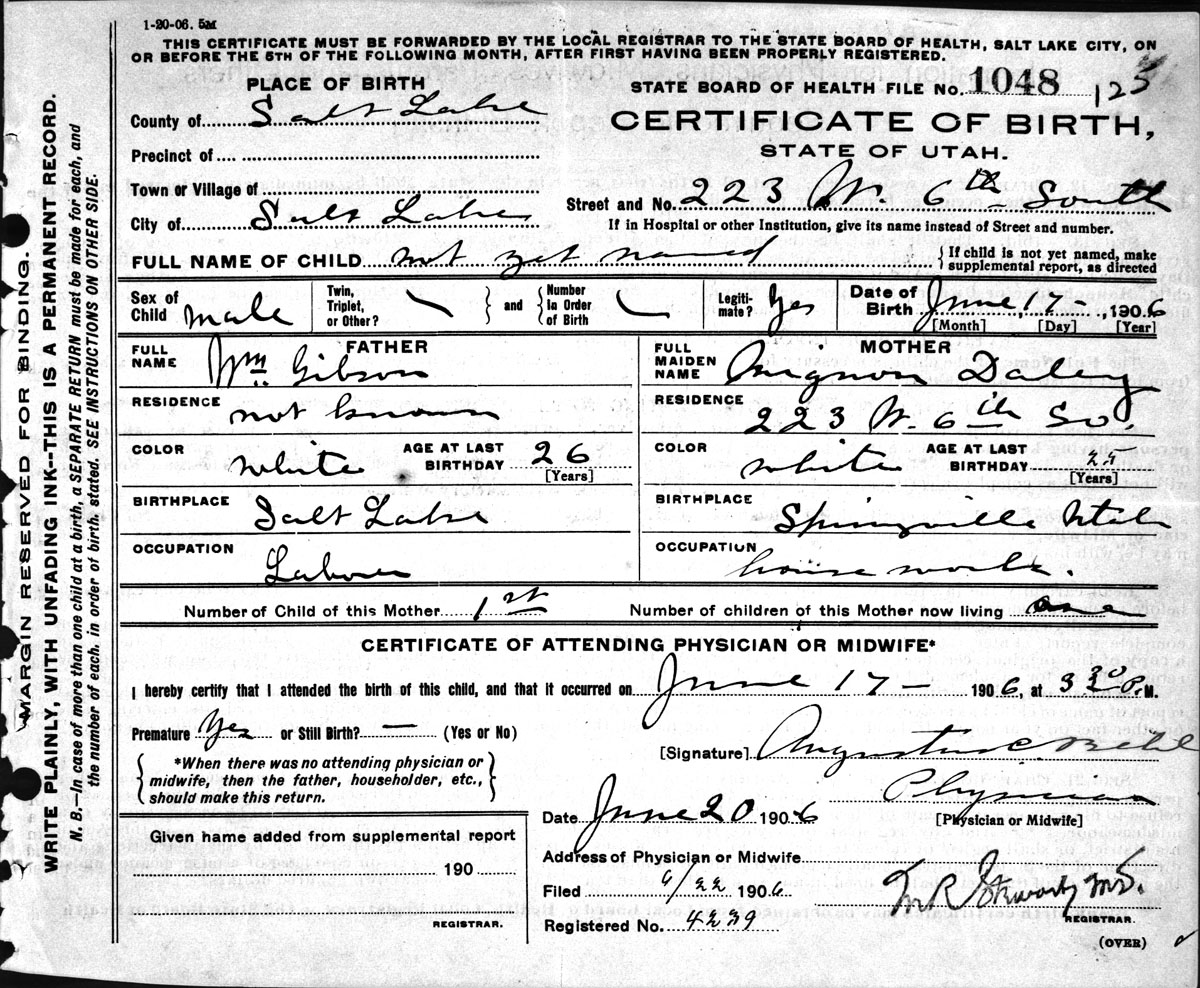 1-20-06. 5M
THIS CERTIFICATE MUST BE FORWARDED BY THE LOCAL REGISTRAR TO THE STATE BOARD OF HEALTH, SALT LAKE CITY, ON
OR BEFORE THE 5TH OF THE FOLLOWING MONTH, AFTER FIRST HAVING BEEN PROPERLY REGISTERED.
MARGIN RESERVED FOR BINDING.
WRITE PLAINLY, WITH UNFADING INK--THIS IS A PERMANENT RECORD.
N. B.—In case of more than one child at a birth, a SEPARATE RETURN must be made for each, and
the number of each, in order of birth, stated. SEE INSTRUCTIONS ON OTHER SIDE.
PLACE OF BIRTH
County of Salt Lake
Precinct of
Town or Village of
City of Salt Lake
STATE BOARD OF HEALTH FILE No. 1048 123
CERTIFICATE OF BIRTH,
STATE OF UTAH.
Street and No. 223 W. 6th South
If in Hospital or other Institution, give its name instead of Street and number.
FULL NAME OF CHILD not yet named { If child is not yet named, make
supplemental report, as directed
Sex of Child male Twin, Triplet, or Other? and Number In Order of Birth Legiti- mate? Yes Date of Birth June 17 - , 1906
[Month] [Day] [Year]
FATHER
FULL NAME Wm. Gibson
RESIDENCE not known
COLOR white AGE AT LAST BIRTHDAY 26
[Years]
BIRTHPLACE Salt Lake
OCCUPATION Laborer
MOTHER
FULL MAIDEN NAME Mignon Daley
RESIDENCE 223 W. 6th So.
COLOR white AGE AT LAST BIRTHDAY
[Years]
BIRTHPLACE Springville Utah
OCCUPATION house work.
Number of Child of this Mother 1st Number of children of this Mother now living one
CERTIFICATE OF ATTENDING PHYSICIAN OR MIDWIFE*
I hereby certify that I attended the birth of this child, and that it occurred on June 17 - 1906, at 3 30 P. M.
Premature Yes or Still Birth? — (Yes or No)
*When there was no attending physician or
midwife, then the father, householder, etc.,
should make this return.
Given name added from supplemental report
190
REGISTRAR.
[Signature] Augustus C. Behle
Physician
[Physician or Midwife]
Date June 20 1906
Address of Physician or Midwife
Filed 6/22 1906.
Registered No. 4239
M R Stewart M.D.
REGISTRAR.
(OVER)